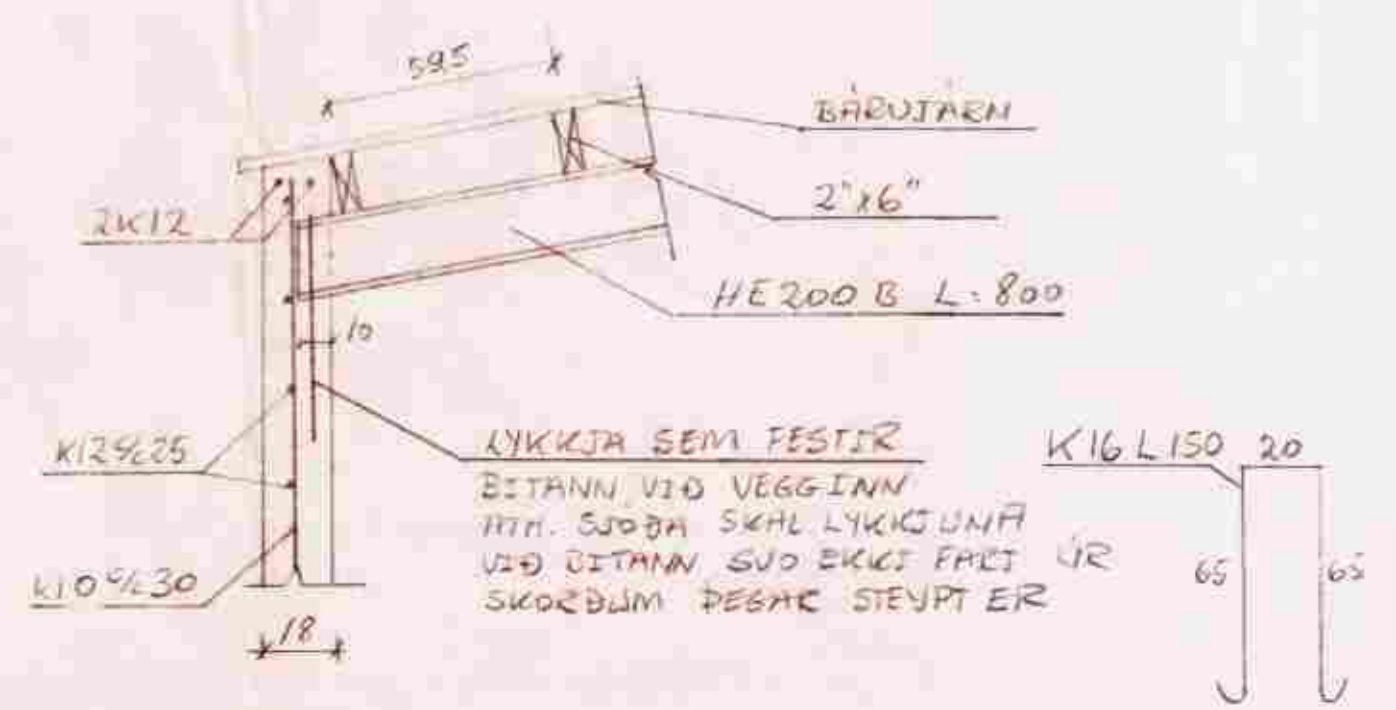 59.5
BÁRUJÁRN
2K12
2"x6"
HE 200 B L=800
10
K12 c/c 25
LYKKJA SEM FESTIR
BITANN VIÐ VEGGINN
ATH. SJÓÐA SKAL LYKKJUNA
VIÐ BITANN SVO EKKI FARI ÚR
SKORÐUM ÞEGAR STEYPT ER
K16 L150 20
65 65
K10 c/c 30
18